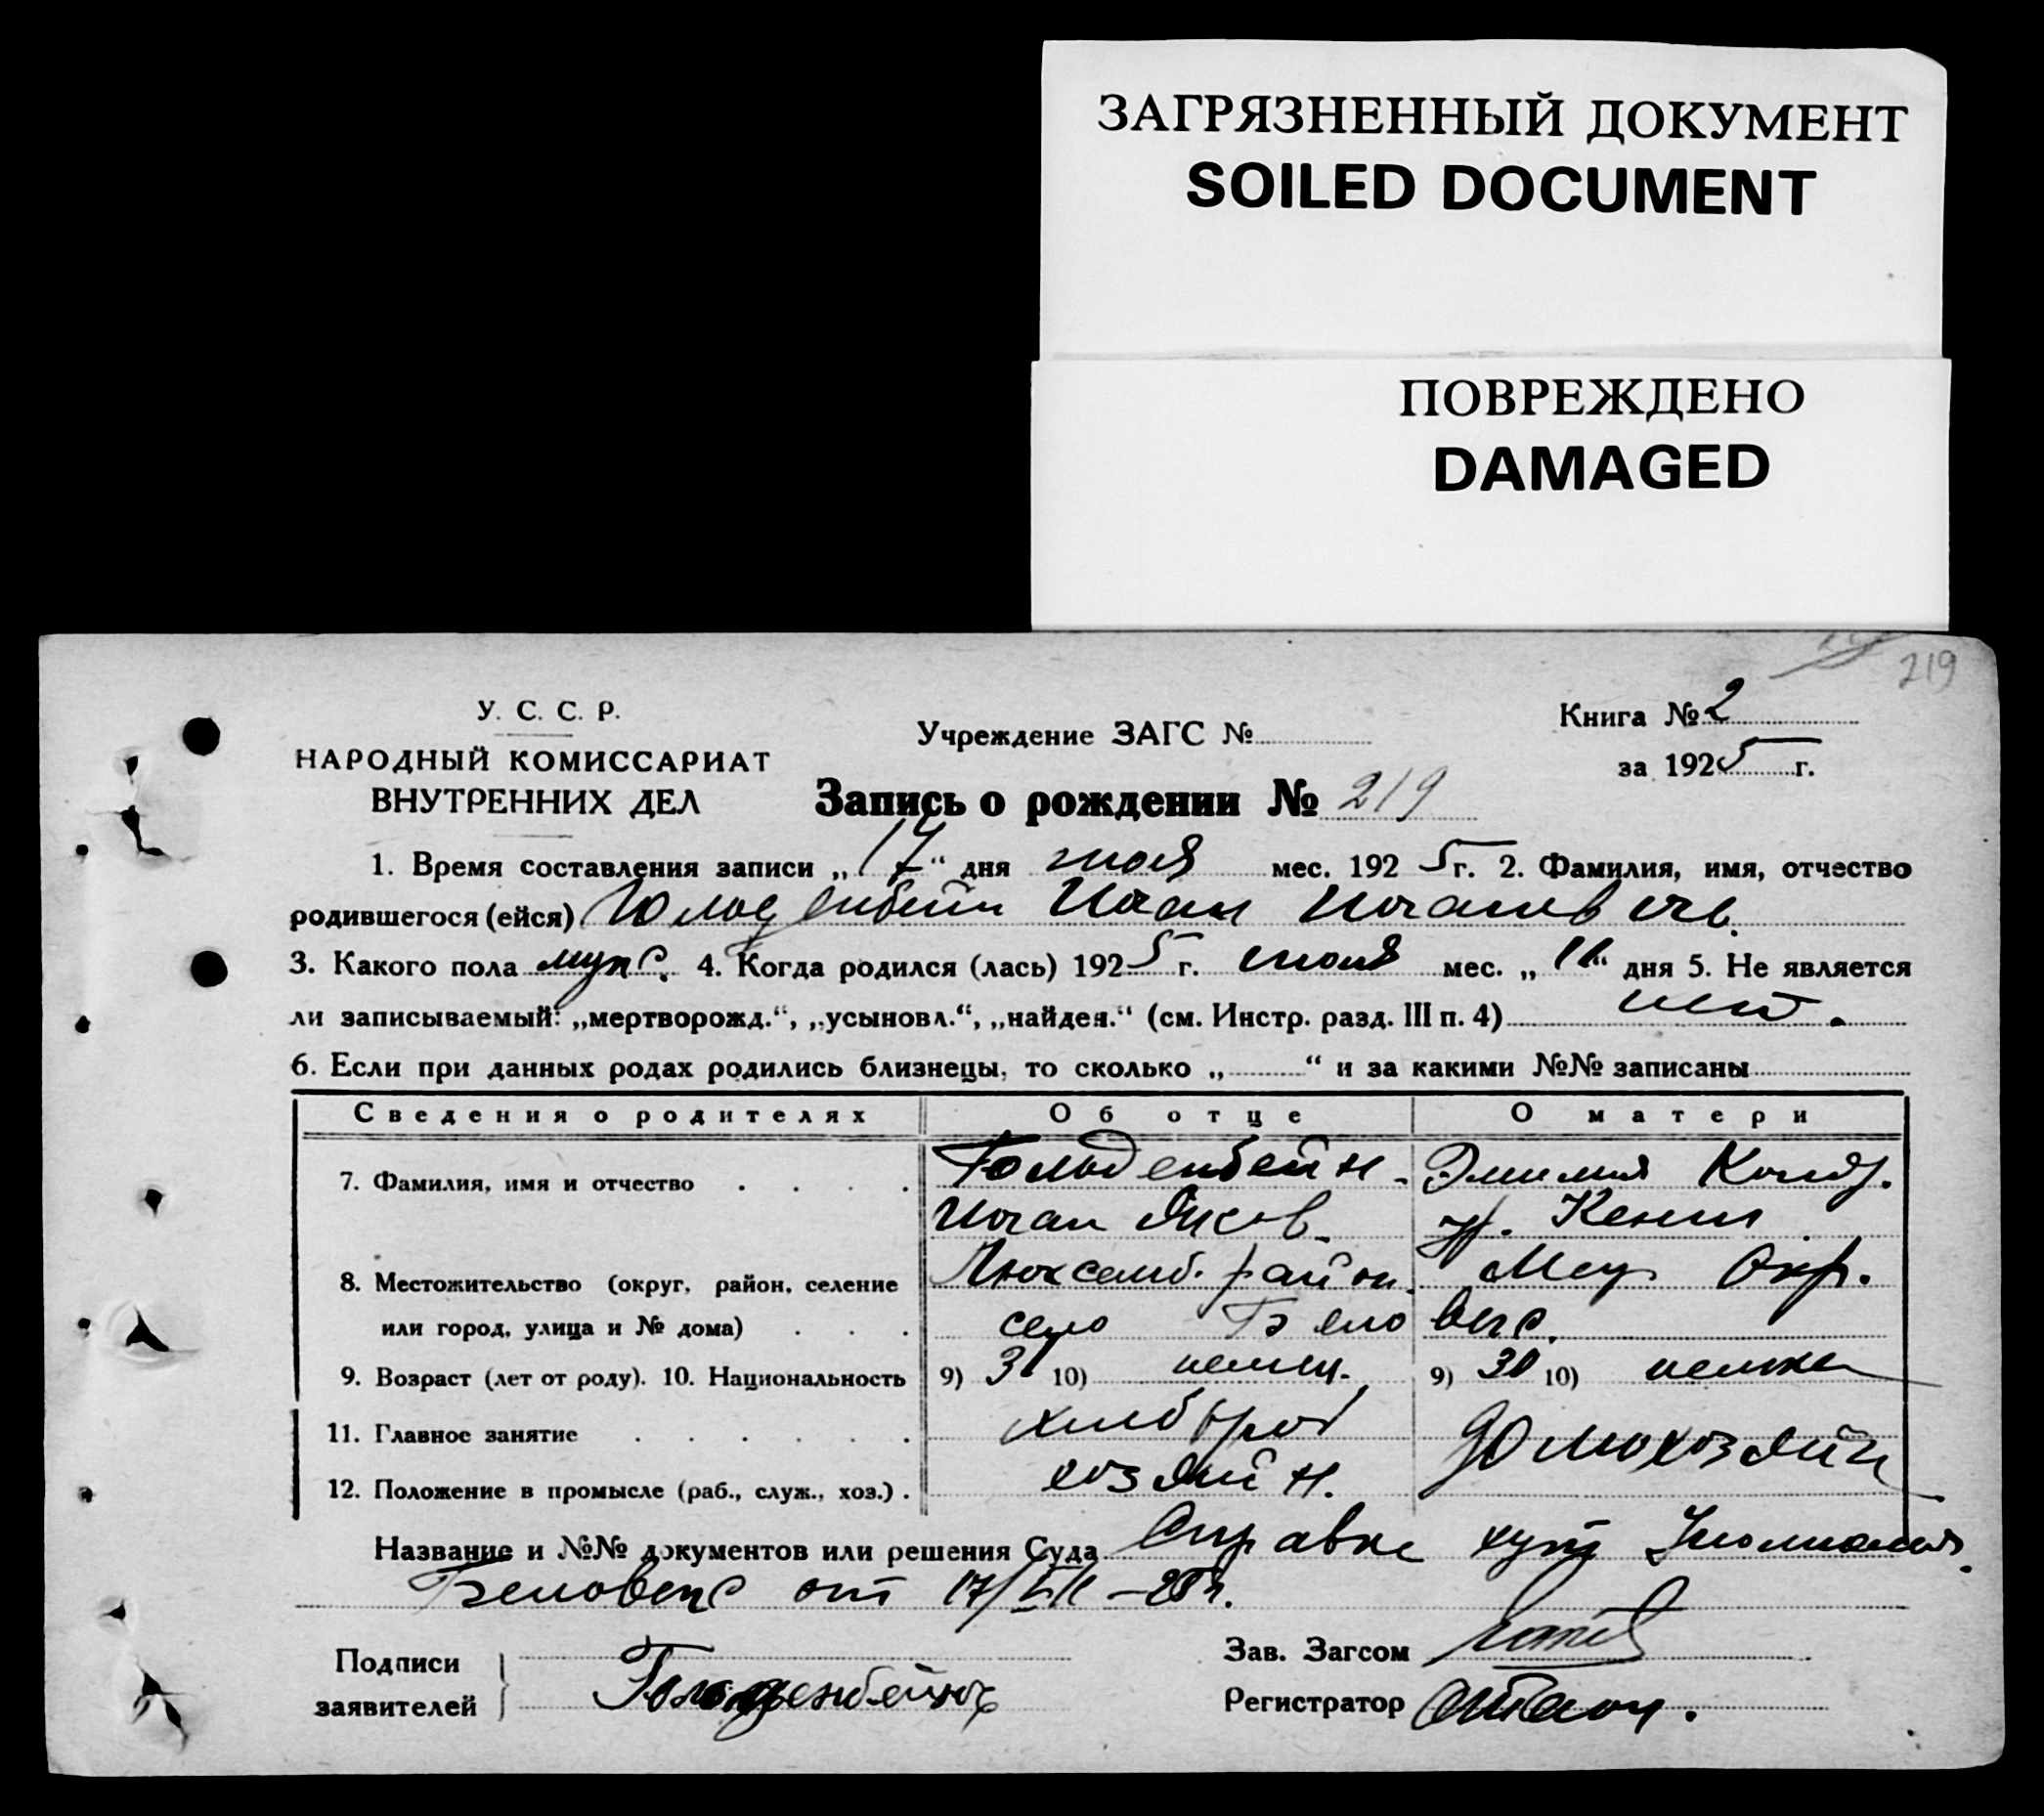 ЗАГРЯЗНЕННЫЙ ДОКУМЕНТ
SOILED DOCUMENT
ПОВРЕЖДЕНО
DAMAGED
219
У. С. С. Р.
НАРОДНЫЙ КОМИССАРИАТ
ВНУТРЕННИХ ДЕЛ
Учреждение ЗАГС №
Книга № 2
за 1925 г.
Запись о рождении № 219
1. Время составления записи „17“ дня июля мес. 1925 г. 2. Фамилия, имя, отчество
родившегося (ейся) Иоган Иоганович
3. Какого пола муж. 4. Когда родился (лась) 1925 г. мес. „ “ дня 5. Не является
ли записываемый: „мертворожд.“, „усыновл.“, „найден.“ (см. Инстр. разд. III п. 4) нет.
6. Если при данных родах родились близнецы, то сколько „ “ и за какими №№ записаны
Сведения о родителях Об отце О матери
7. Фамилия, имя и отчество Гольденбейн. Эмилия
Иоган Яков.
8. Местожительство (округ, район, селение Люксемб. район. Окр.
или город, улица и № дома) село Беловеж.
9. Возраст (лет от роду). 10. Национальность 9) 31 10) немец. 9) 30 10) немка
11. Главное занятие хлебороб домохозяйк
12. Положение в промысле (раб., служ., хоз.) хозяин.
Название и №№ документов или решения Суда Справка
Беловеж от 17/VII-25 г.
Подписи
заявителей Гольденбейн
Зав. Загсом
Регистратор